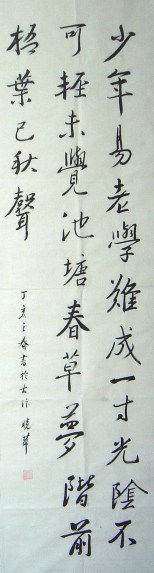 少年易老學難成一寸光陰不
可輕未覺池塘春草夢階前
梧葉已秋聲
丁亥之春書於古